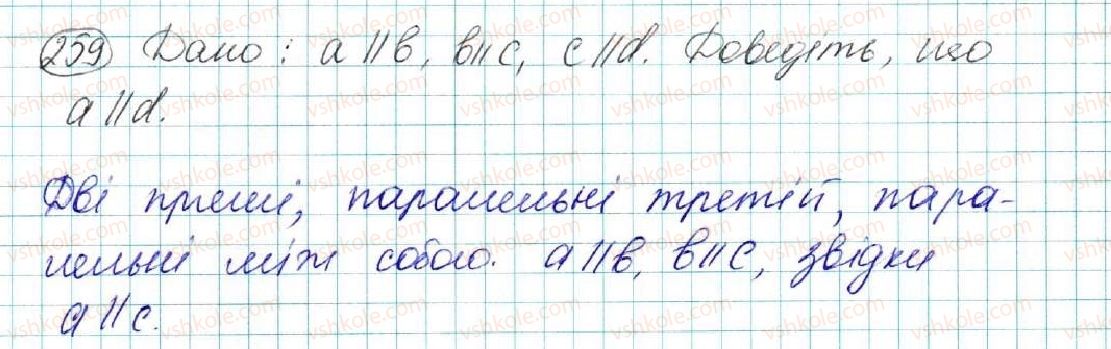 259 Дано: a||b, b||c, c||d. Доведіть, що
a||d.
Дві прямі, паралельні третій, пара-
лельні між собою. a||b, b||c, звідки
a||c.